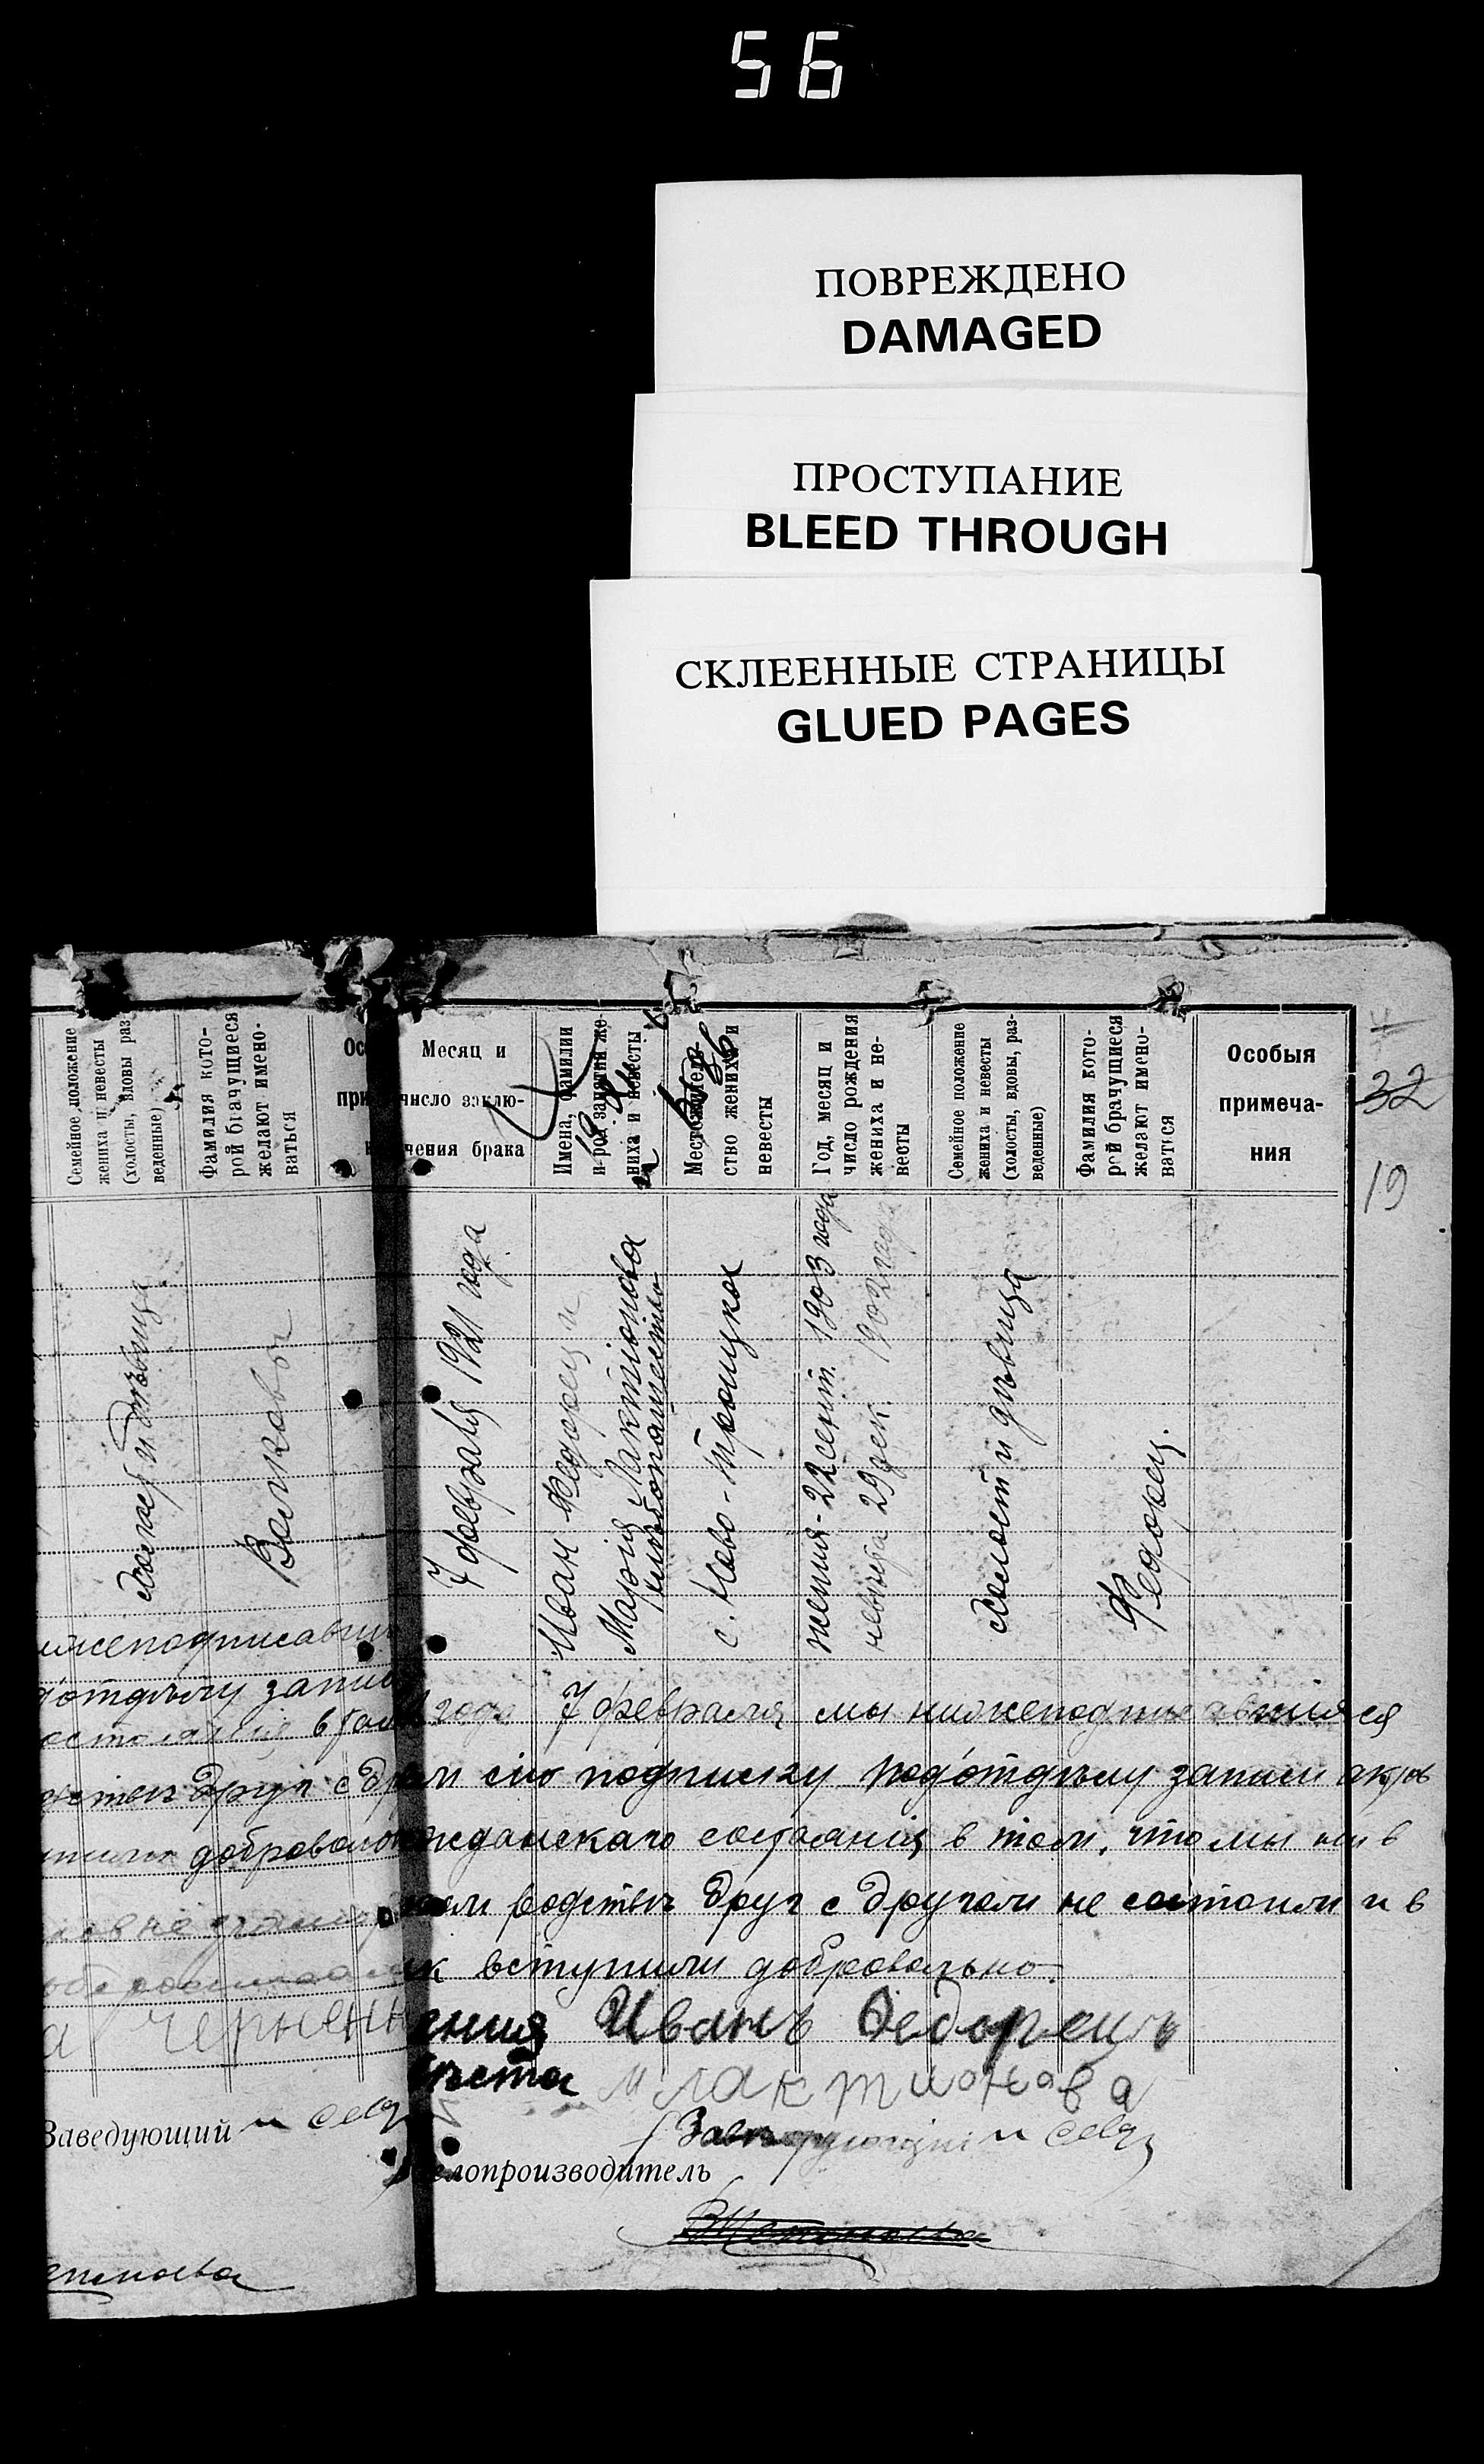 56
ПОВРЕЖДЕНО
DAMAGED
ПРОСТУПАНИЕ
BLEED THROUGH
СКЛЕЕННЫЕ СТРАНИЦЫ
GLUED PAGES
Семейное положение
жениха и невесты
(холосты, вдовы раз
веденные)
Фамилия кото-
рой брачущиеся
желают имено-
ваться
Ос
при
Месяц и
число заклю-
чения брака
Имена, фамилии
и род занятий же-
ниха и невесты
Местожитель-
ство жениха и
невесты
Год, месяц и
число рождения
жениха и не-
весты
Семейное положение
жениха и невесты
(холосты, вдовы, раз-
веденные)
Фамилия кото-
рой брачущиеся
желают имено-
ваться
Особыя
примеча-
ния
32
19
и дѣвица
Волковы
7 февраля 1921 года
Иван Федорец и
Мария Лактионова
хлѣбопашество
с. Ново-Троицкое
жених - 22 сент. 1903 года
невѣста 29 дек. 1902 года
Холост и дѣвица
Федорец.
ижеподписавши
дотдѣлу запис
года 7 февраля мы нижеподписавшияся
друг с др
сию подписку подотдѣлу записи актов
доброволь
жданскаго состояния в том, что мы ни в
родствѣ друг с другом не состоим и в
к вступили добровольно.
а Черненк
ених Иванъ Федорецъ
вѣста М Лактионова
Заведующий
Завѣдующий
елопроизводитель